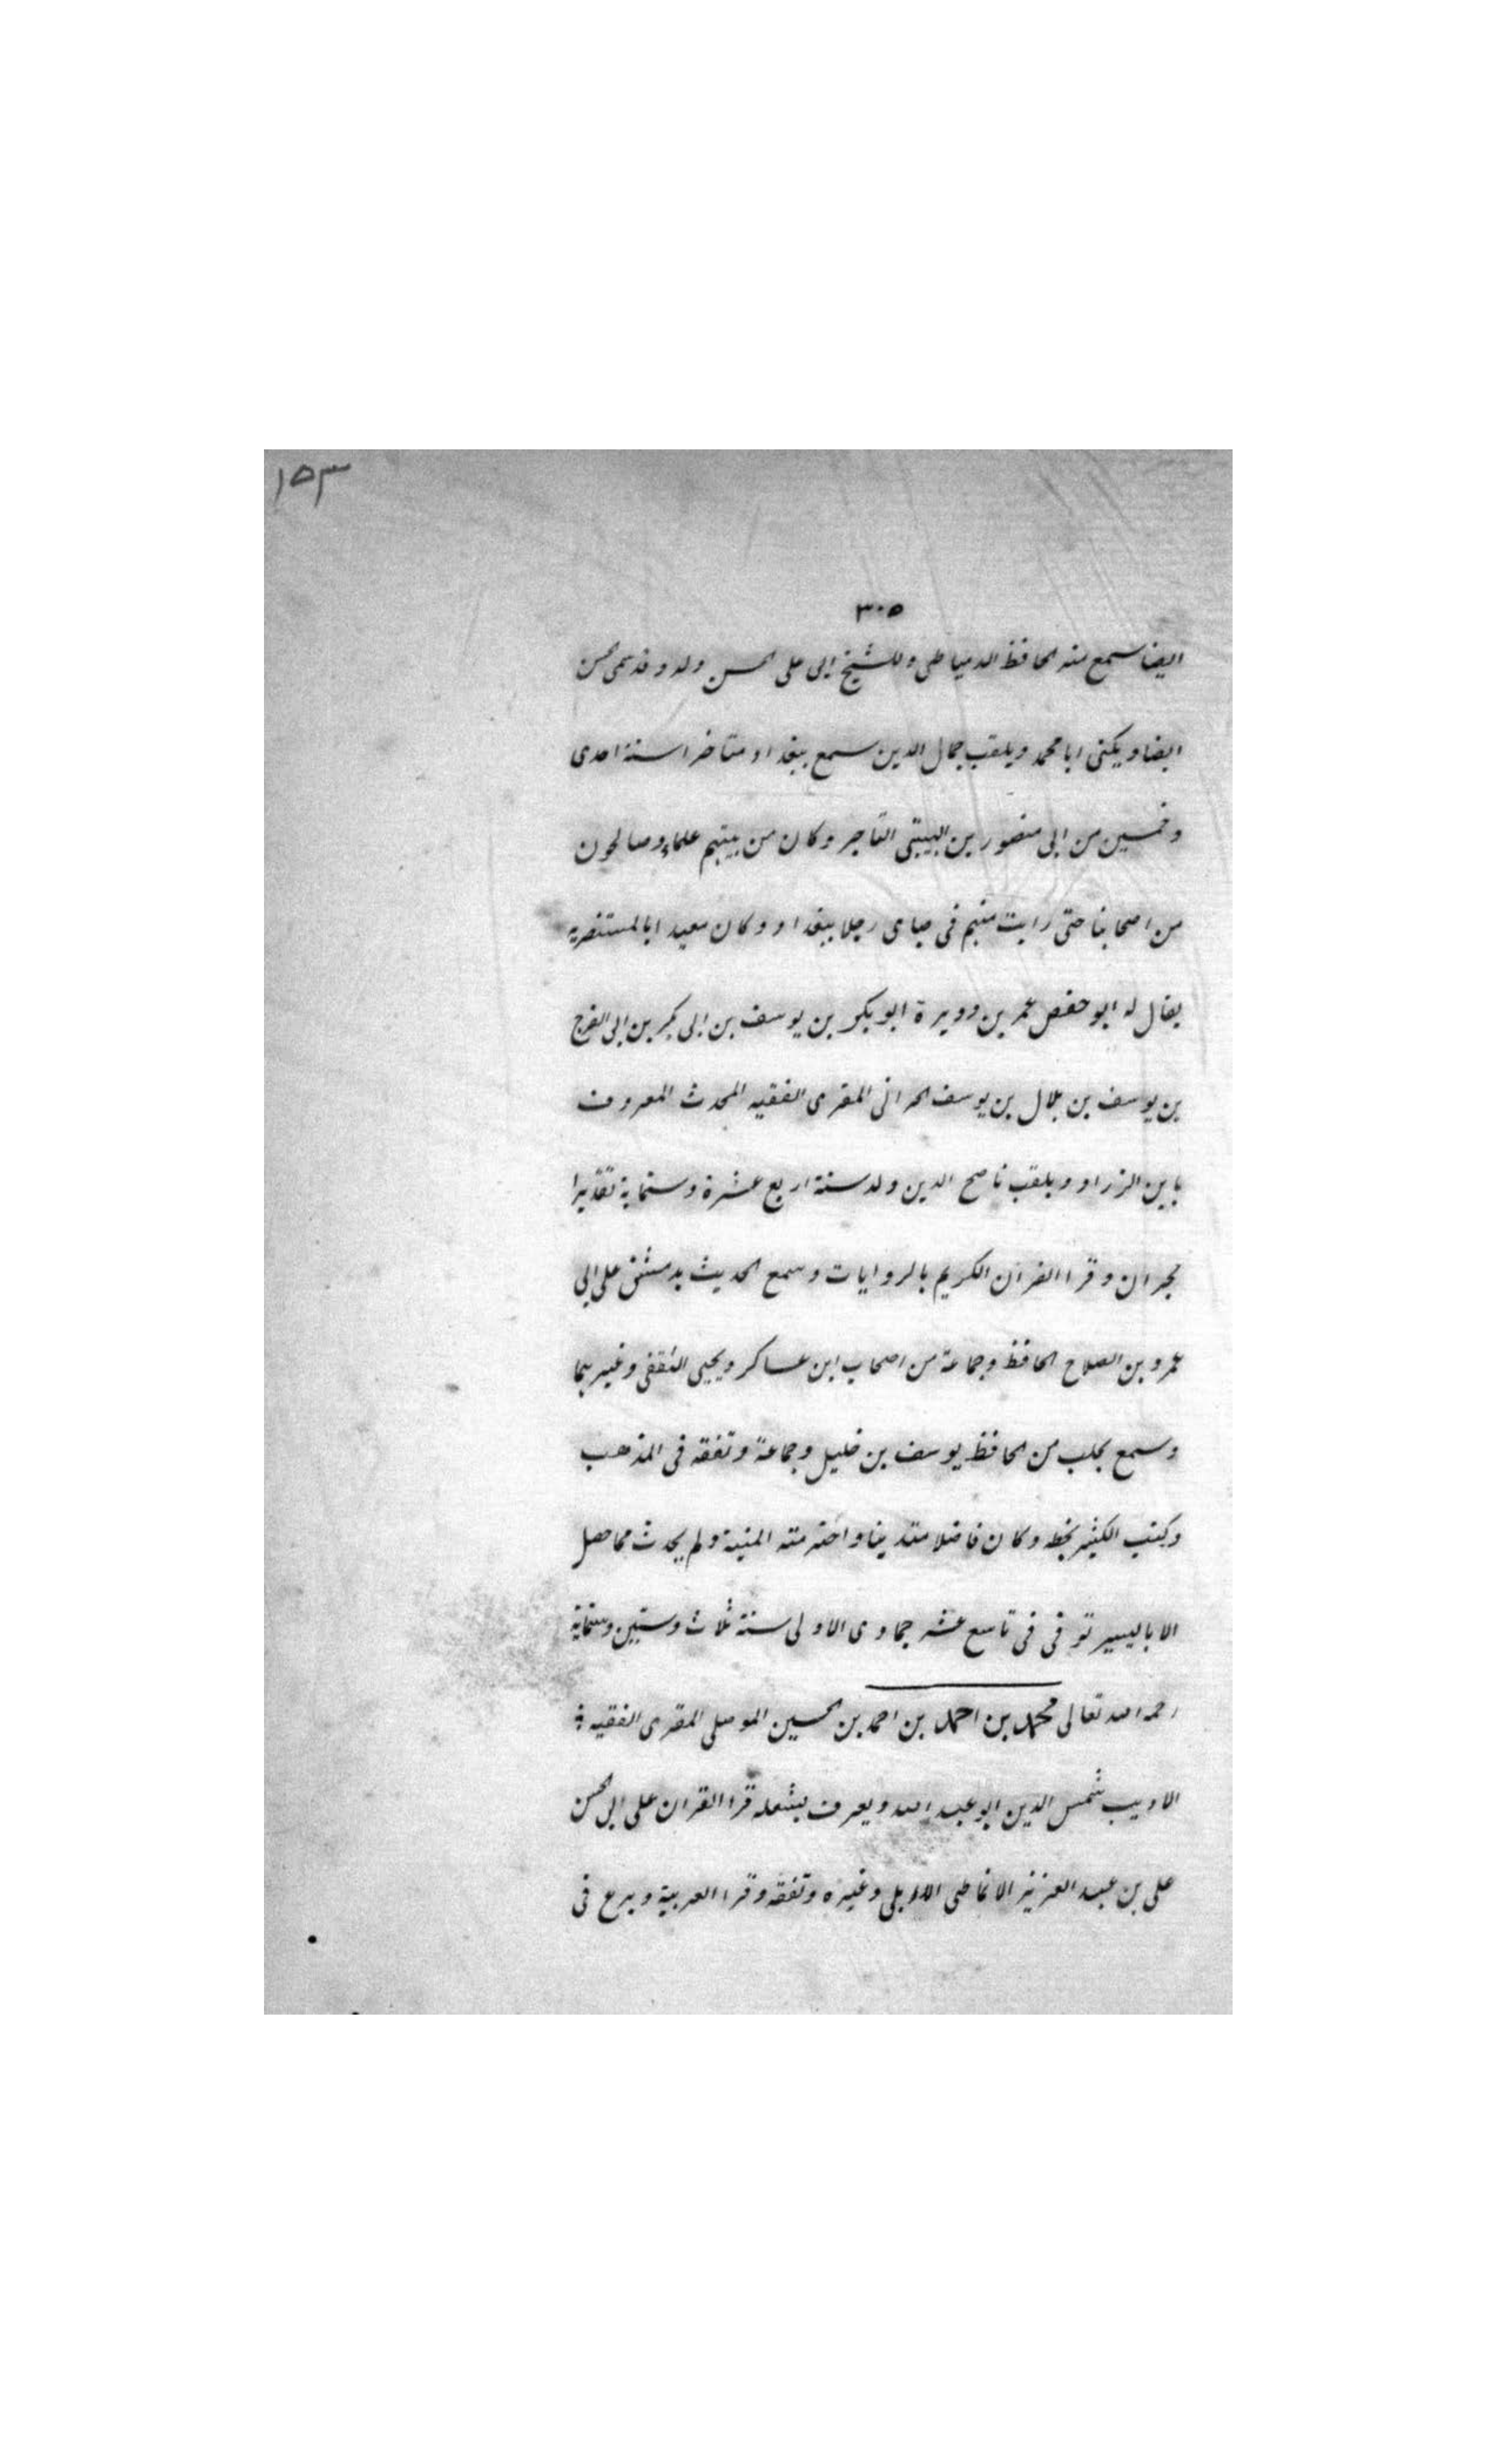 ١٥٣
٣٠٥
ايضا سمع منه الحافظ الدمياطى وللشيخ ابى على الحسن ولد وقد سمى محسن
ايضا ويكنى ابا محمد ويلقب جمال الدين سمع ببغداد متاخرا سنة احدى
وخمسين من ابى منصور بن الهيتى التاجر وكان من بيتهم علماء وصالحون
من اصحابنا حتى رايت منهم فى صباى رجلا ببغداد وكان معيدا بالمستنصريه
يقال له ابو حفص عمر بن دويرة ابو بكر بن يوسف بن ابى بكر بن ابى الفرج
بن يوسف بن هلال بن يوسف الحرانى المقرى الفقيه المحدث المعروف
بابن الزراد ويلقب ناصح الدين ولد سنة اربع عشرة وستماية تقديرا
بحران وقرا القرآن الكريم بالروايات وسمع الحديث بدمشق على ابى
عمرو بن الصلاح الحافظ وجماعة من اصحاب ابن عساكر ويحيى الثقفى وغيرهما
وسمع بحلب من الحافظ يوسف بن خليل وجماعة وتفقه فى المذهب
وكتب الكثير بخطه وكان فاضلا متدينا واخترمته المنية ولم يحدث مما حصل
الا باليسير توفى فى تاسع عشر جمادى الاولى سنة ثلاث وستين وستماية
رحمه الله تعالى محمد بن احمد بن احمد بن الحسين الموصلى المقرى الفقيه
الاديب شمس الدين ابو عبد الله ويعرف بشعله قرا القران على ابى الحسن
على بن عبد العزيز الانماطى الاربلى وغيره وتفقه وقرا العربية وبرع فى